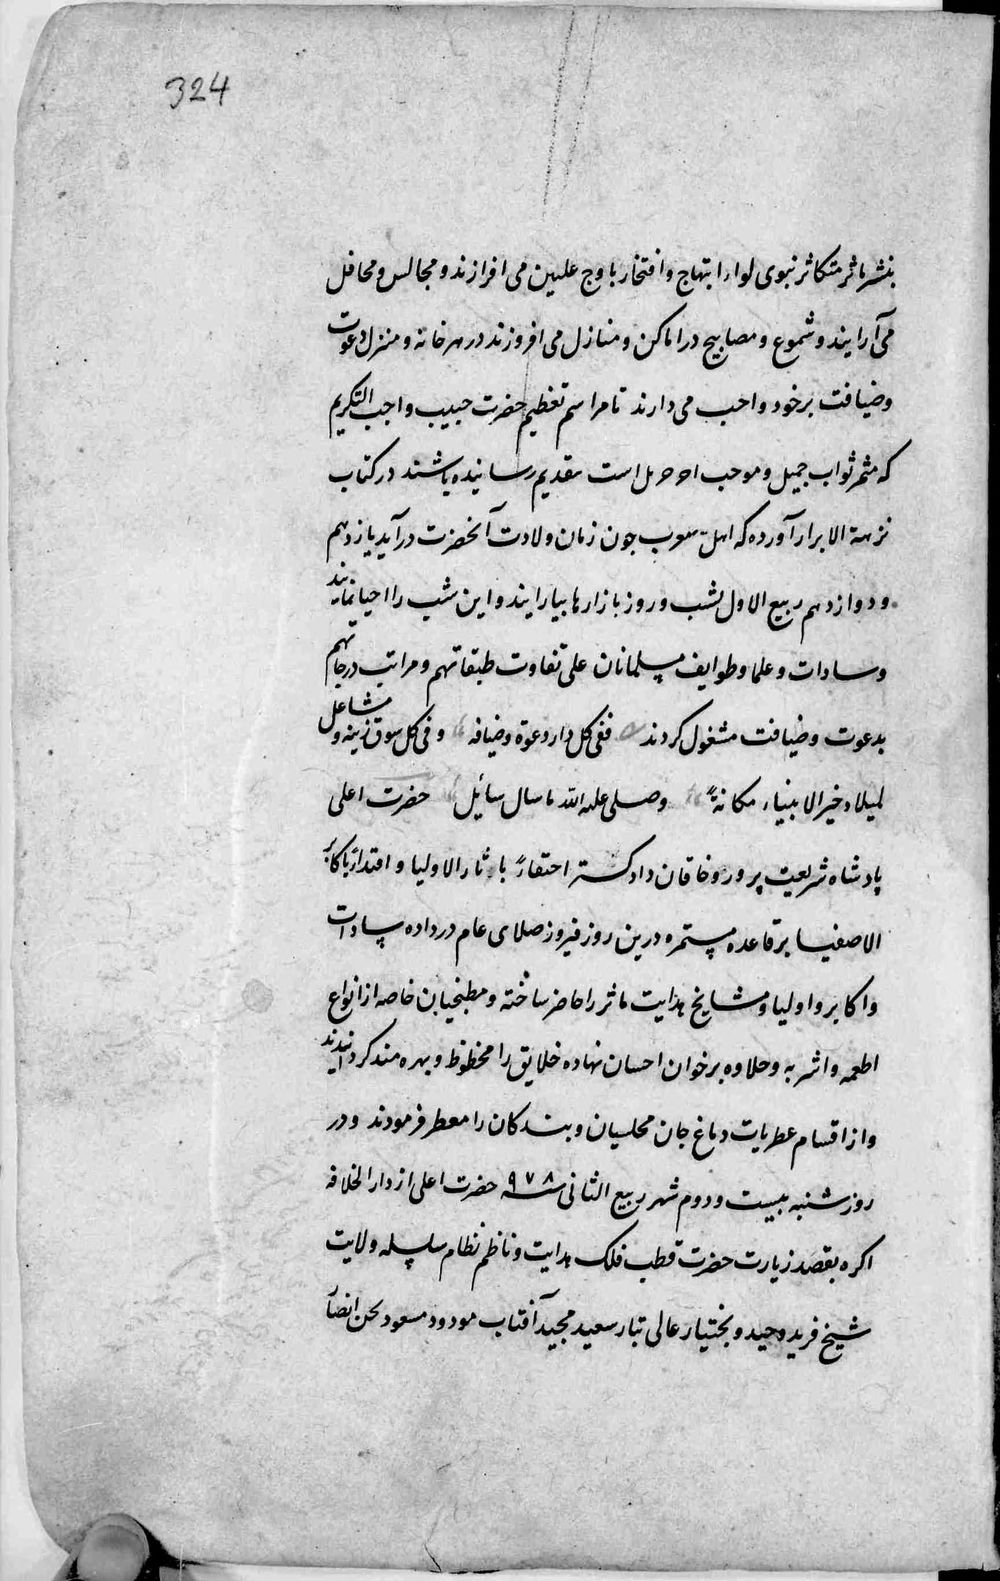 324
بنشر مآثر متکاثر نبوی لواء ابتهاج و افتخار باوج علیین می افرازند و مجالس و محافل
می آرایند و شموع و مصابیح در اماکن و منازل می افروزند در هر خانه و منزل دعوت
وضیافت بر خود واجب می دارند تا مراسم تعظیم حضرت حبیب واجب التکریم
که مثمر ثواب جمیل و موجب اجر جزیل است بتقدیم رسانیده باشند در کتاب
نزهة الابرار آورده که اهل چون زمان ولادت آنحضرت درآید یازدهم
و دوازدهم ربیع الاول بشب و روز بازارها بیارایند و این شب را احیا نمایند
و سادات و علما و طوایف مسلمانان علی تفاوت طبقاتهم و مراتب درجاتهم
بدعوت وضیافت مشغول کردند ففی کل دار دعوة وضیافه و فی کل سوق زینه و مشاعل
لمیلاد خیر الانبیاء مکانةً وصلی علیه الله ما سال سائیل حضرت اعلی
پادشاه شریعت پرور و خاقان دادکستر احتفاءً باثار الاولیا و اقتداءً باکابر
الاصفیا بر قاعده مستمره درین روز فیروز صلای عام در داده سادات
و اکابر و اولیا و مشایخ هدایت ماثر را حاضر ساخته و مطبخیان خاصه از انواع
اطعمه و اشربه و حلاوه بر خوان احسان نهاده خلایق را محظوظ و بهره مند کردانیدند
و از اقسام عطریات دماغ جان مجلسیان و بندکان را معطر فرمودند و در
روز شنبه بیست و دوم شهر ربیع الثانی سنه ۹۷۸ حضرت اعلی از دار الخلافه
اکره بقصد زیارت حضرت قطب فلک هدایت و ناظم نظام سلسله ولایت
شیخ فرید وحید و بختیار عالی تبار سعید مجید آفتاب مودود مسعود